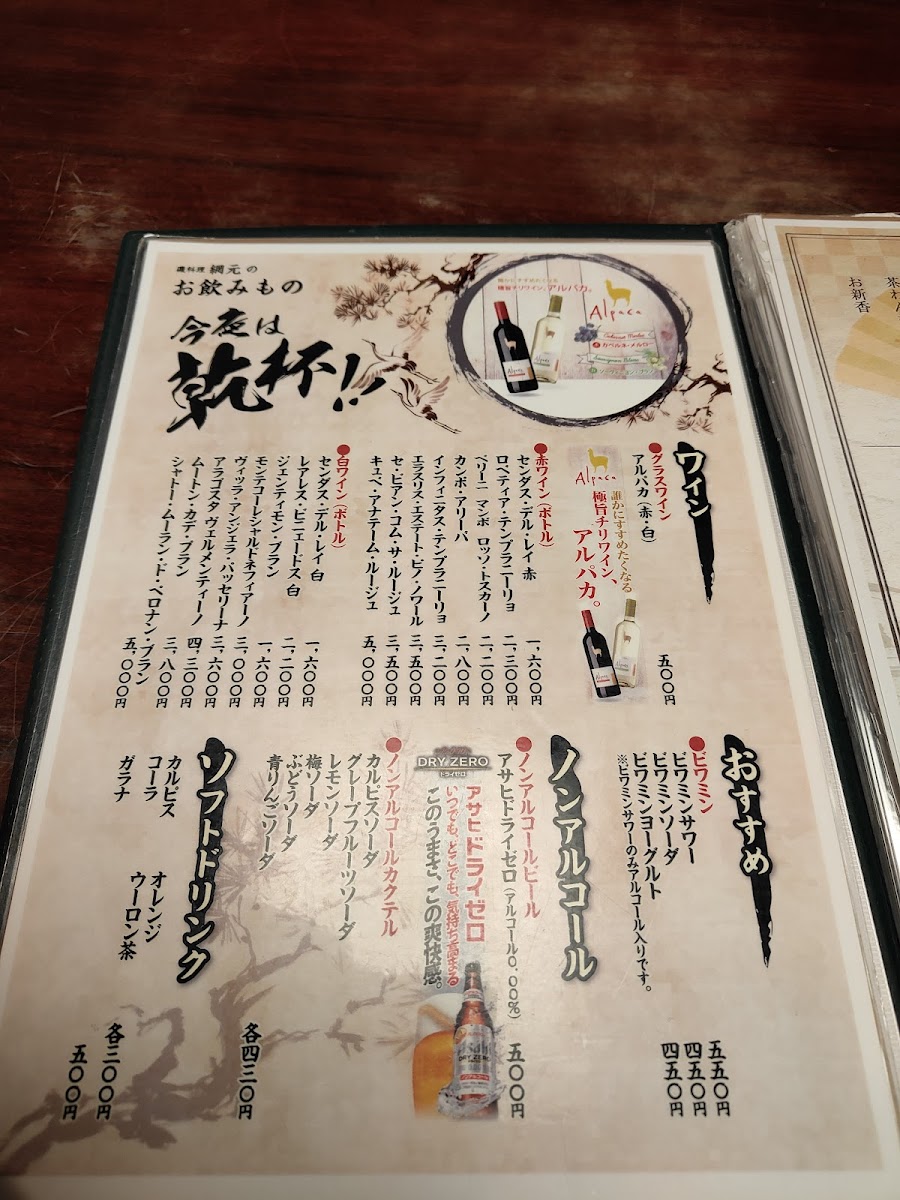 磯料理 網元の
お飲みもの
今夜は
乾杯!!
誰かにすすめたくなる
極旨チリワイン、アルパカ。
Alpaca
Cabernet Merlot
カベルネ・メルロー
Sauvignon Blanc
ワイン
●グラスワイン
アルパカ（赤・白） 五〇〇円
Alpaca
誰かにすすめたくなる
極旨チリワイン、
アルパカ。
●赤ワイン（ボトル）
センダス・デル・レイ 赤 一、六〇〇円
ロペティア・テンプラニーリョ 二、三〇〇円
ベリーニ マンボ ロッソ・トスカーノ 二、二〇〇円
カンポ・アリーバ 二、八〇〇円
インフィニタス・テンプラニーリョ 三、二〇〇円
エラスリス・エステート・ピノ・ノワール 三、五〇〇円
セ・ビアン・コム・サ・ルージュ 三、五〇〇円
キュベ・アナテーム・ルージュ 五、〇〇〇円
●白ワイン（ボトル）
センダス・デル・レイ 白 一、六〇〇円
レアレス・ビニェードス 白 二、二〇〇円
ジェンティモン・ブラン 一、六〇〇円
モンテコーレ シャルドネフィアーノ 三、〇〇〇円
ヴィッラ・アンジェラ・パッセリーナ 三、六〇〇円
アラゴスタ ヴェルメンティーノ 四、三〇〇円
ムートン・カデ・ブラン 三、八〇〇円
シャトー・ムーラン・ド・ペロナン・ブラン 五、〇〇〇円
おすすめ
●ビワミン
ビワミンサワー 五五〇円
ビワミンソーダ 四五〇円
ビワミンヨーグルト 四五〇円
※ビワミンサワーのみアルコール入りです。
ノンアルコール
●ノンアルコールビール
アサヒドライゼロ（アルコール0.00%） 五〇〇円
DRY ZERO
ドライゼロ
アサヒドライゼロ
いつでも、どこでも、気持ち高まる
このうまさ、この爽快感。
●ノンアルコールカクテル
カルピスソーダ
グレープフルーツソーダ
レモンソーダ
梅ソーダ
ぶどうソーダ
青りんごソーダ
各四三〇円
ソフトドリンク
カルピス オレンジ
コーラ ウーロン茶
各三〇〇円
ガラナ 五〇〇円
お新香